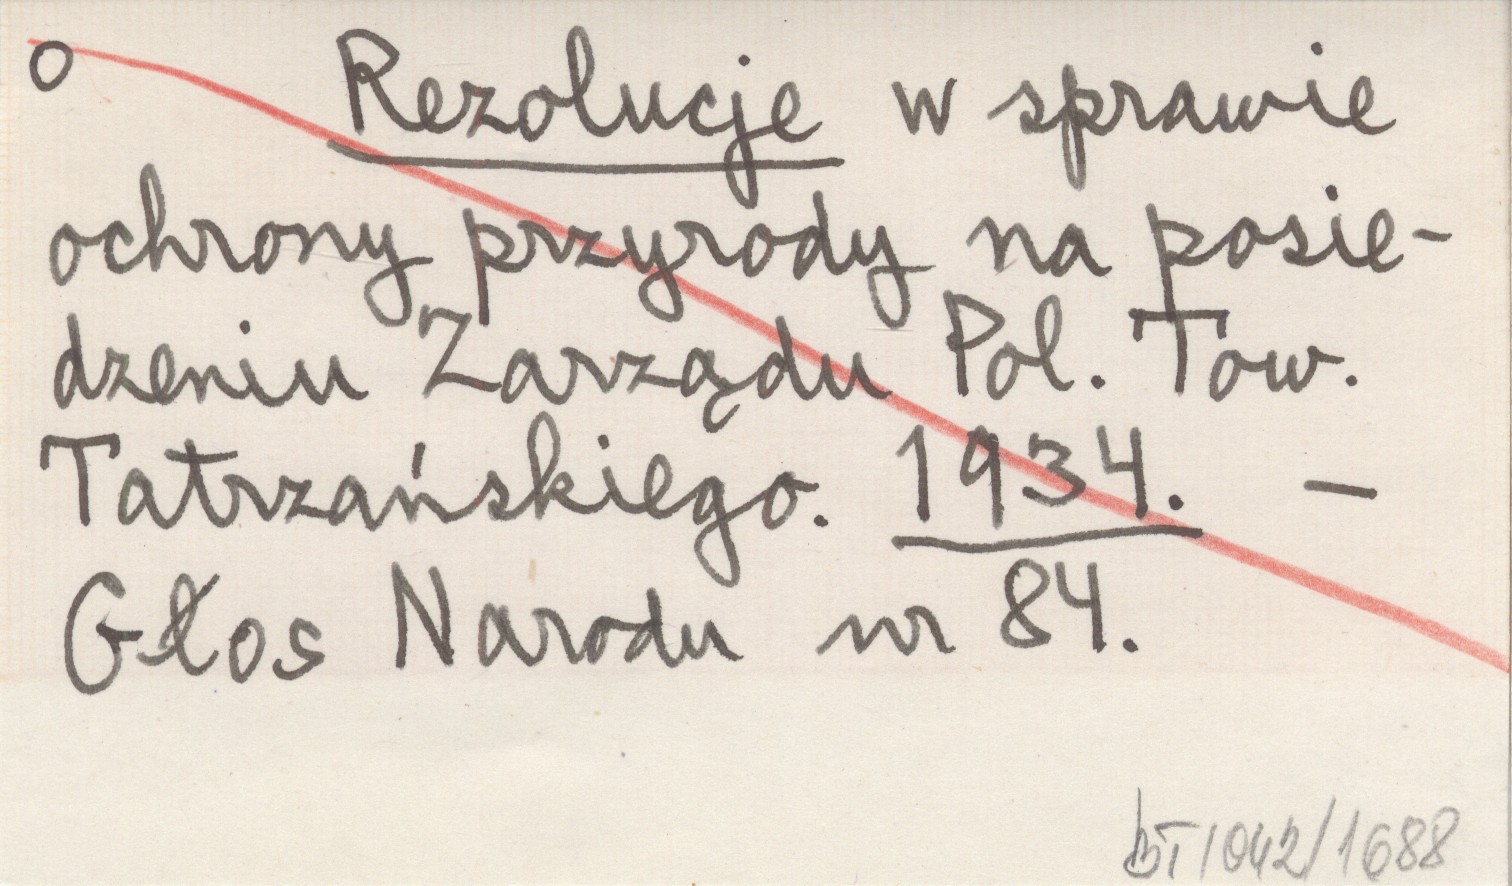 o Rezolucje w sprawie
ochrony przyrody na posie-
dzeniu Zarządu Pol. Tow.
Tatrzańskiego. 1934. —
Głos Narodu nr 84.
1042/1688